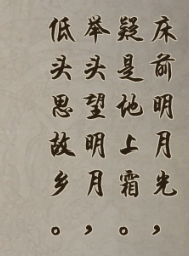 床前明月光，
疑是地上霜。
举头望明月，
低头思故乡。